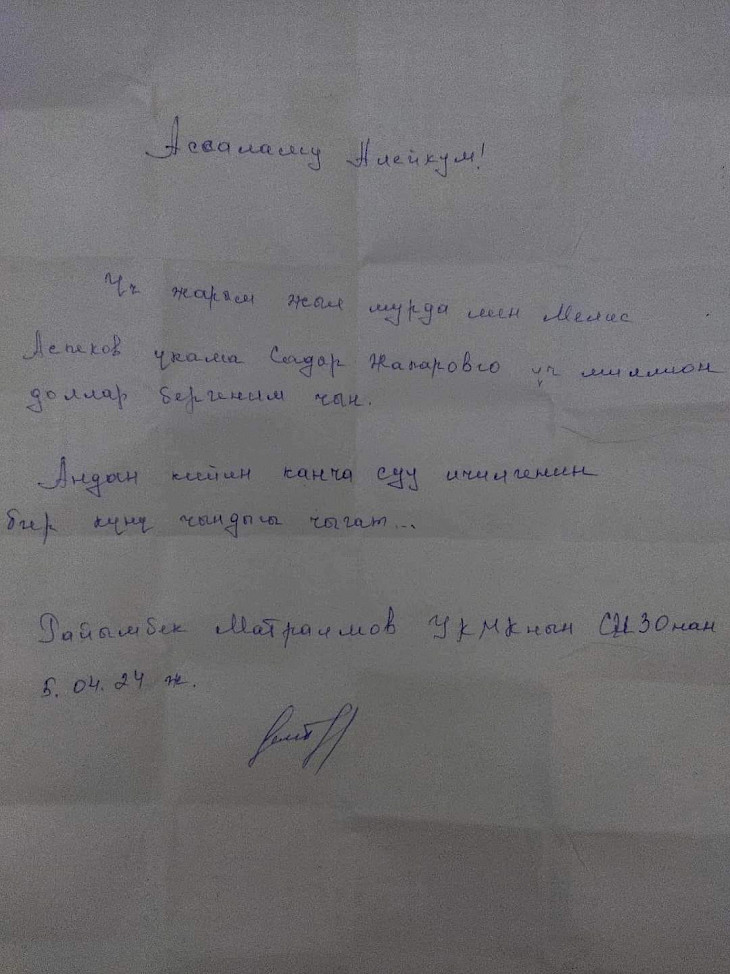 Ассаламу Алейкум!
Үч жарым жыл мурда мен Мелис
Аспеков укама Садыр Жапаровго үч миллион
доллар бергеним чын.
Андан кийин канча суу ичилгенин
бир күнү чындыгы чыгат...
Райымбек Матраимов УКМКнын СИЗОнан
5.04.24 ж.